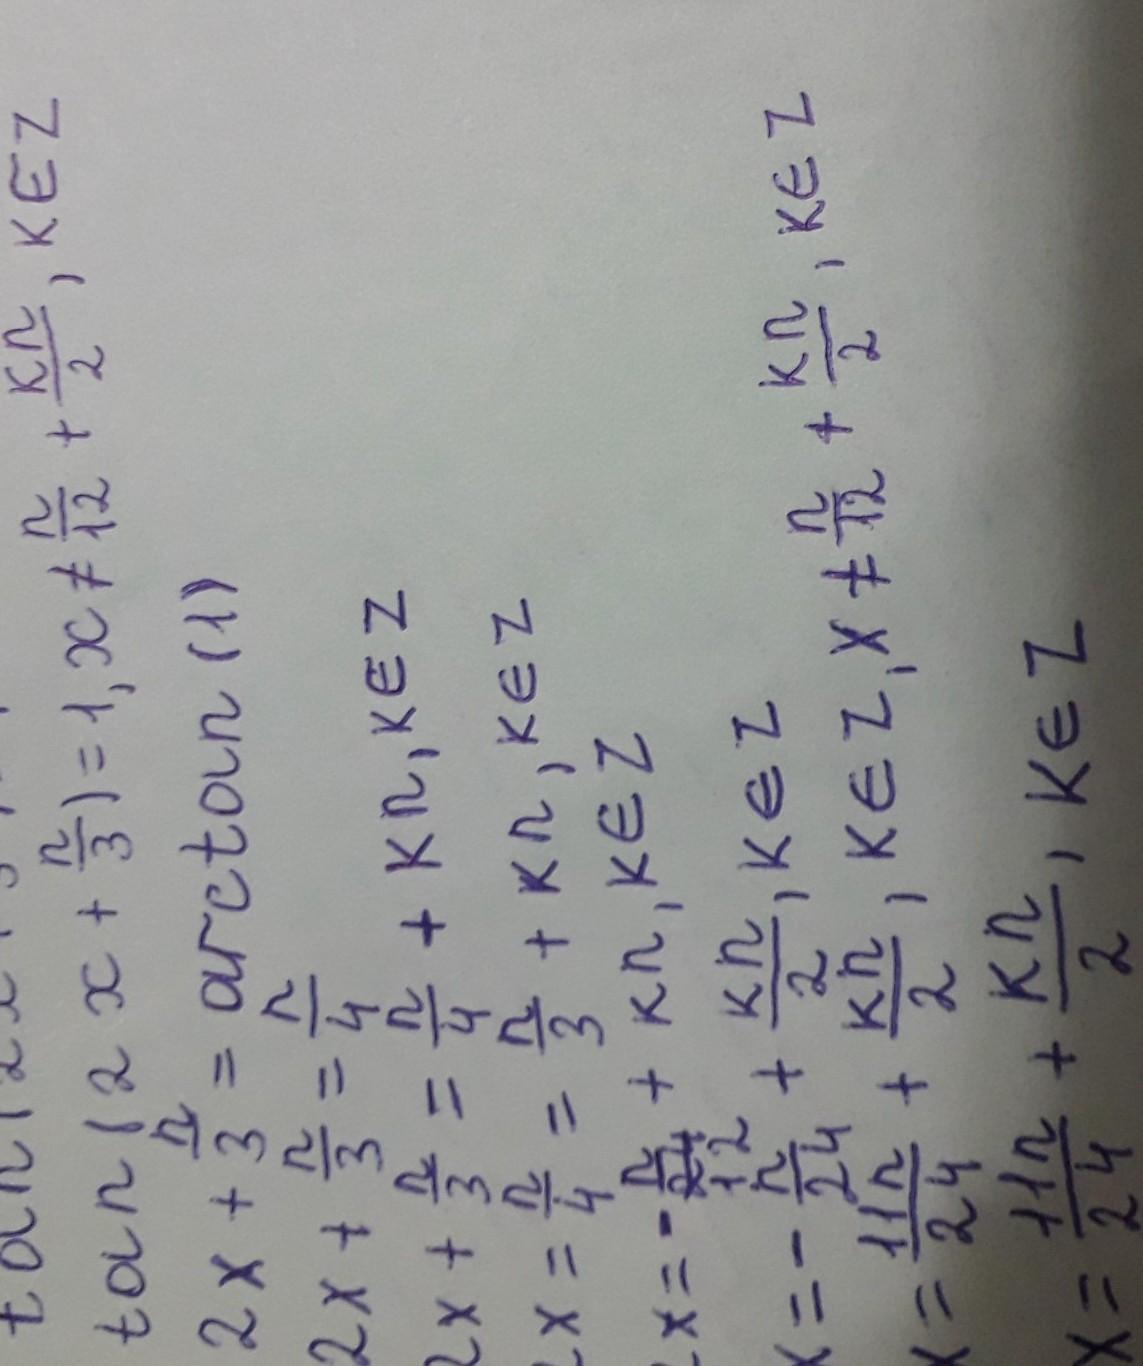 tan(2x + π/3) = 1, x ≠ π/12 + kπ/2, k∈Z
2x + π/3 = arctan(1)
2x + π/3 = π/4
2x + π/3 = π/4 + kπ, k∈Z
2x = π/4 = π/3 + kπ, k∈Z
2x = -π/12 + kπ, k∈Z
x = -π/24 + kπ/2, k∈Z
x = 11π/24 + kπ/2, k∈Z, x ≠ π/12 + kπ/2, k∈Z
x = 11π/24 + kπ/2, k∈Z